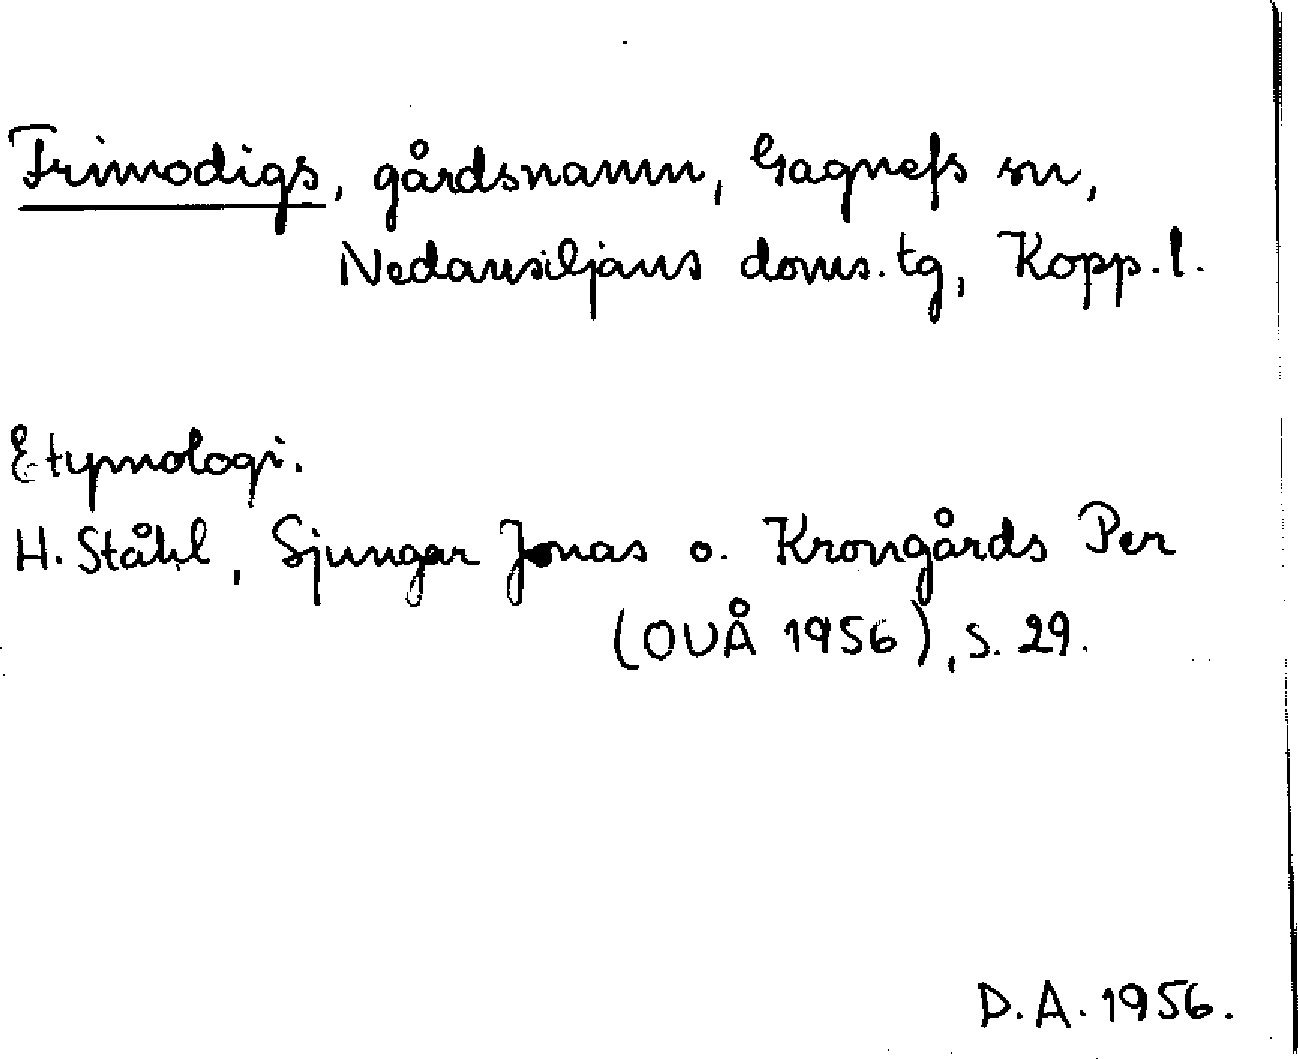 Frimodigs, gårdsnamn, Gagnefs sn,
Nedansiljans doms. tg, Kopp. l.
Etymologi.
H. Ståhl, Sjungar Jonas o. Krongårds Per
(OUÅ 1956), s. 29.
D. A. 1956.